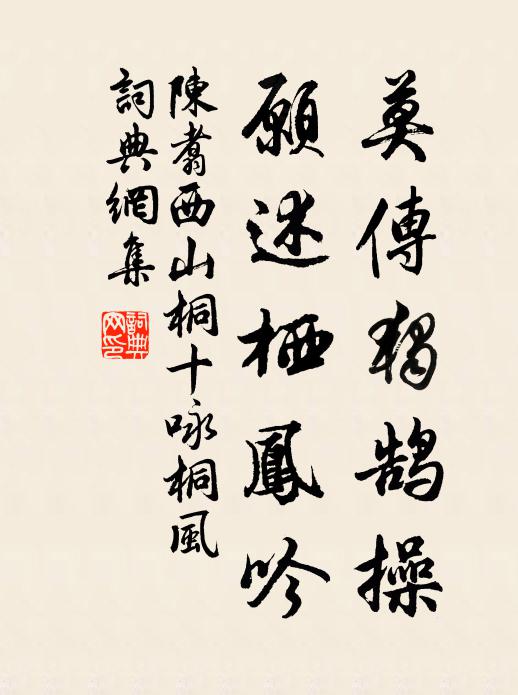 莫傳獨鵠操
願述栖鳳吟
陳翥西山桐十咏桐風
詞典網集
詞典網印